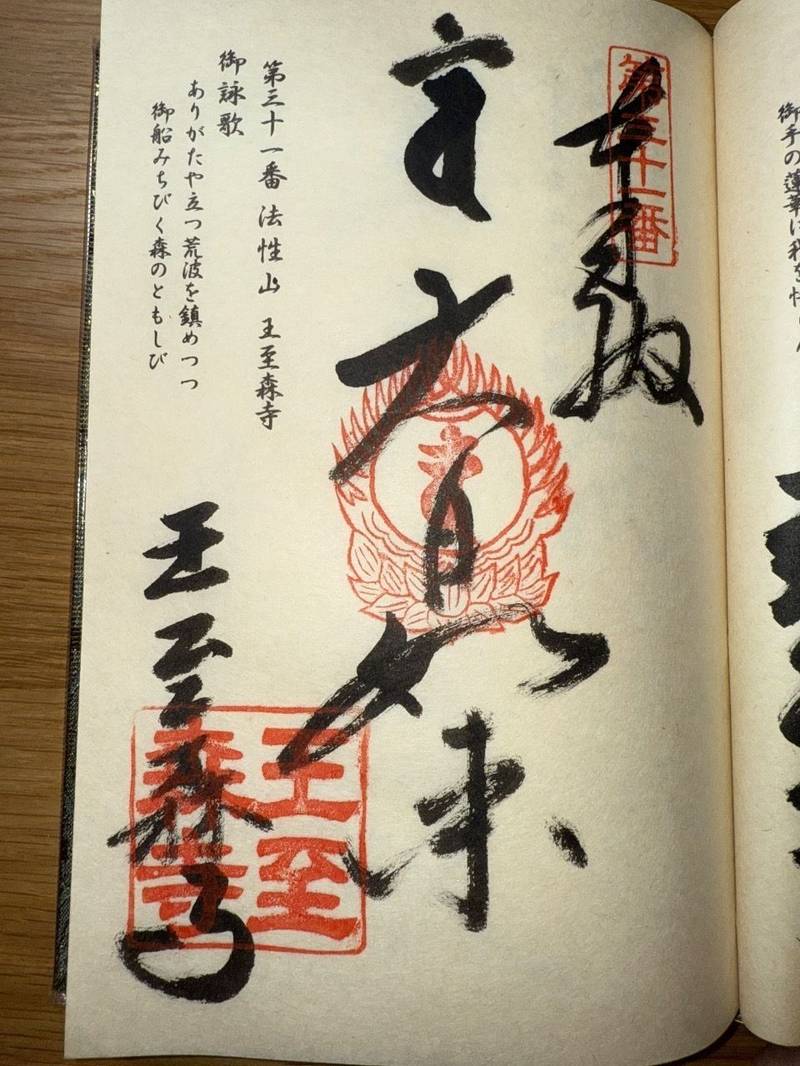 御手の蓮華は我を
第三十一番
奉納
大日如来
第三十一番 法性山 王至森寺
御詠歌
ありがたや立つ荒波を鎮めつつ
御船みちびく森のともしび
王至森寺
王至
森寺